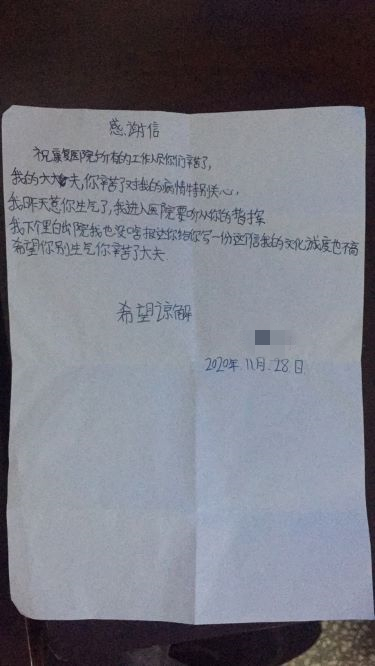 感谢信
祝康复医院的所有的工作人员你们辛苦了,
我的大夫,你辛苦了对我的病情特别关心,
我昨天惹你生气了,我进入医院要听从你的指挥
我下个里白出院我也没啥报达你给你写一份这个信我的文化诚度也不高
希望你别生气你辛苦了大夫
希望谅解
2020年.11月.28.日